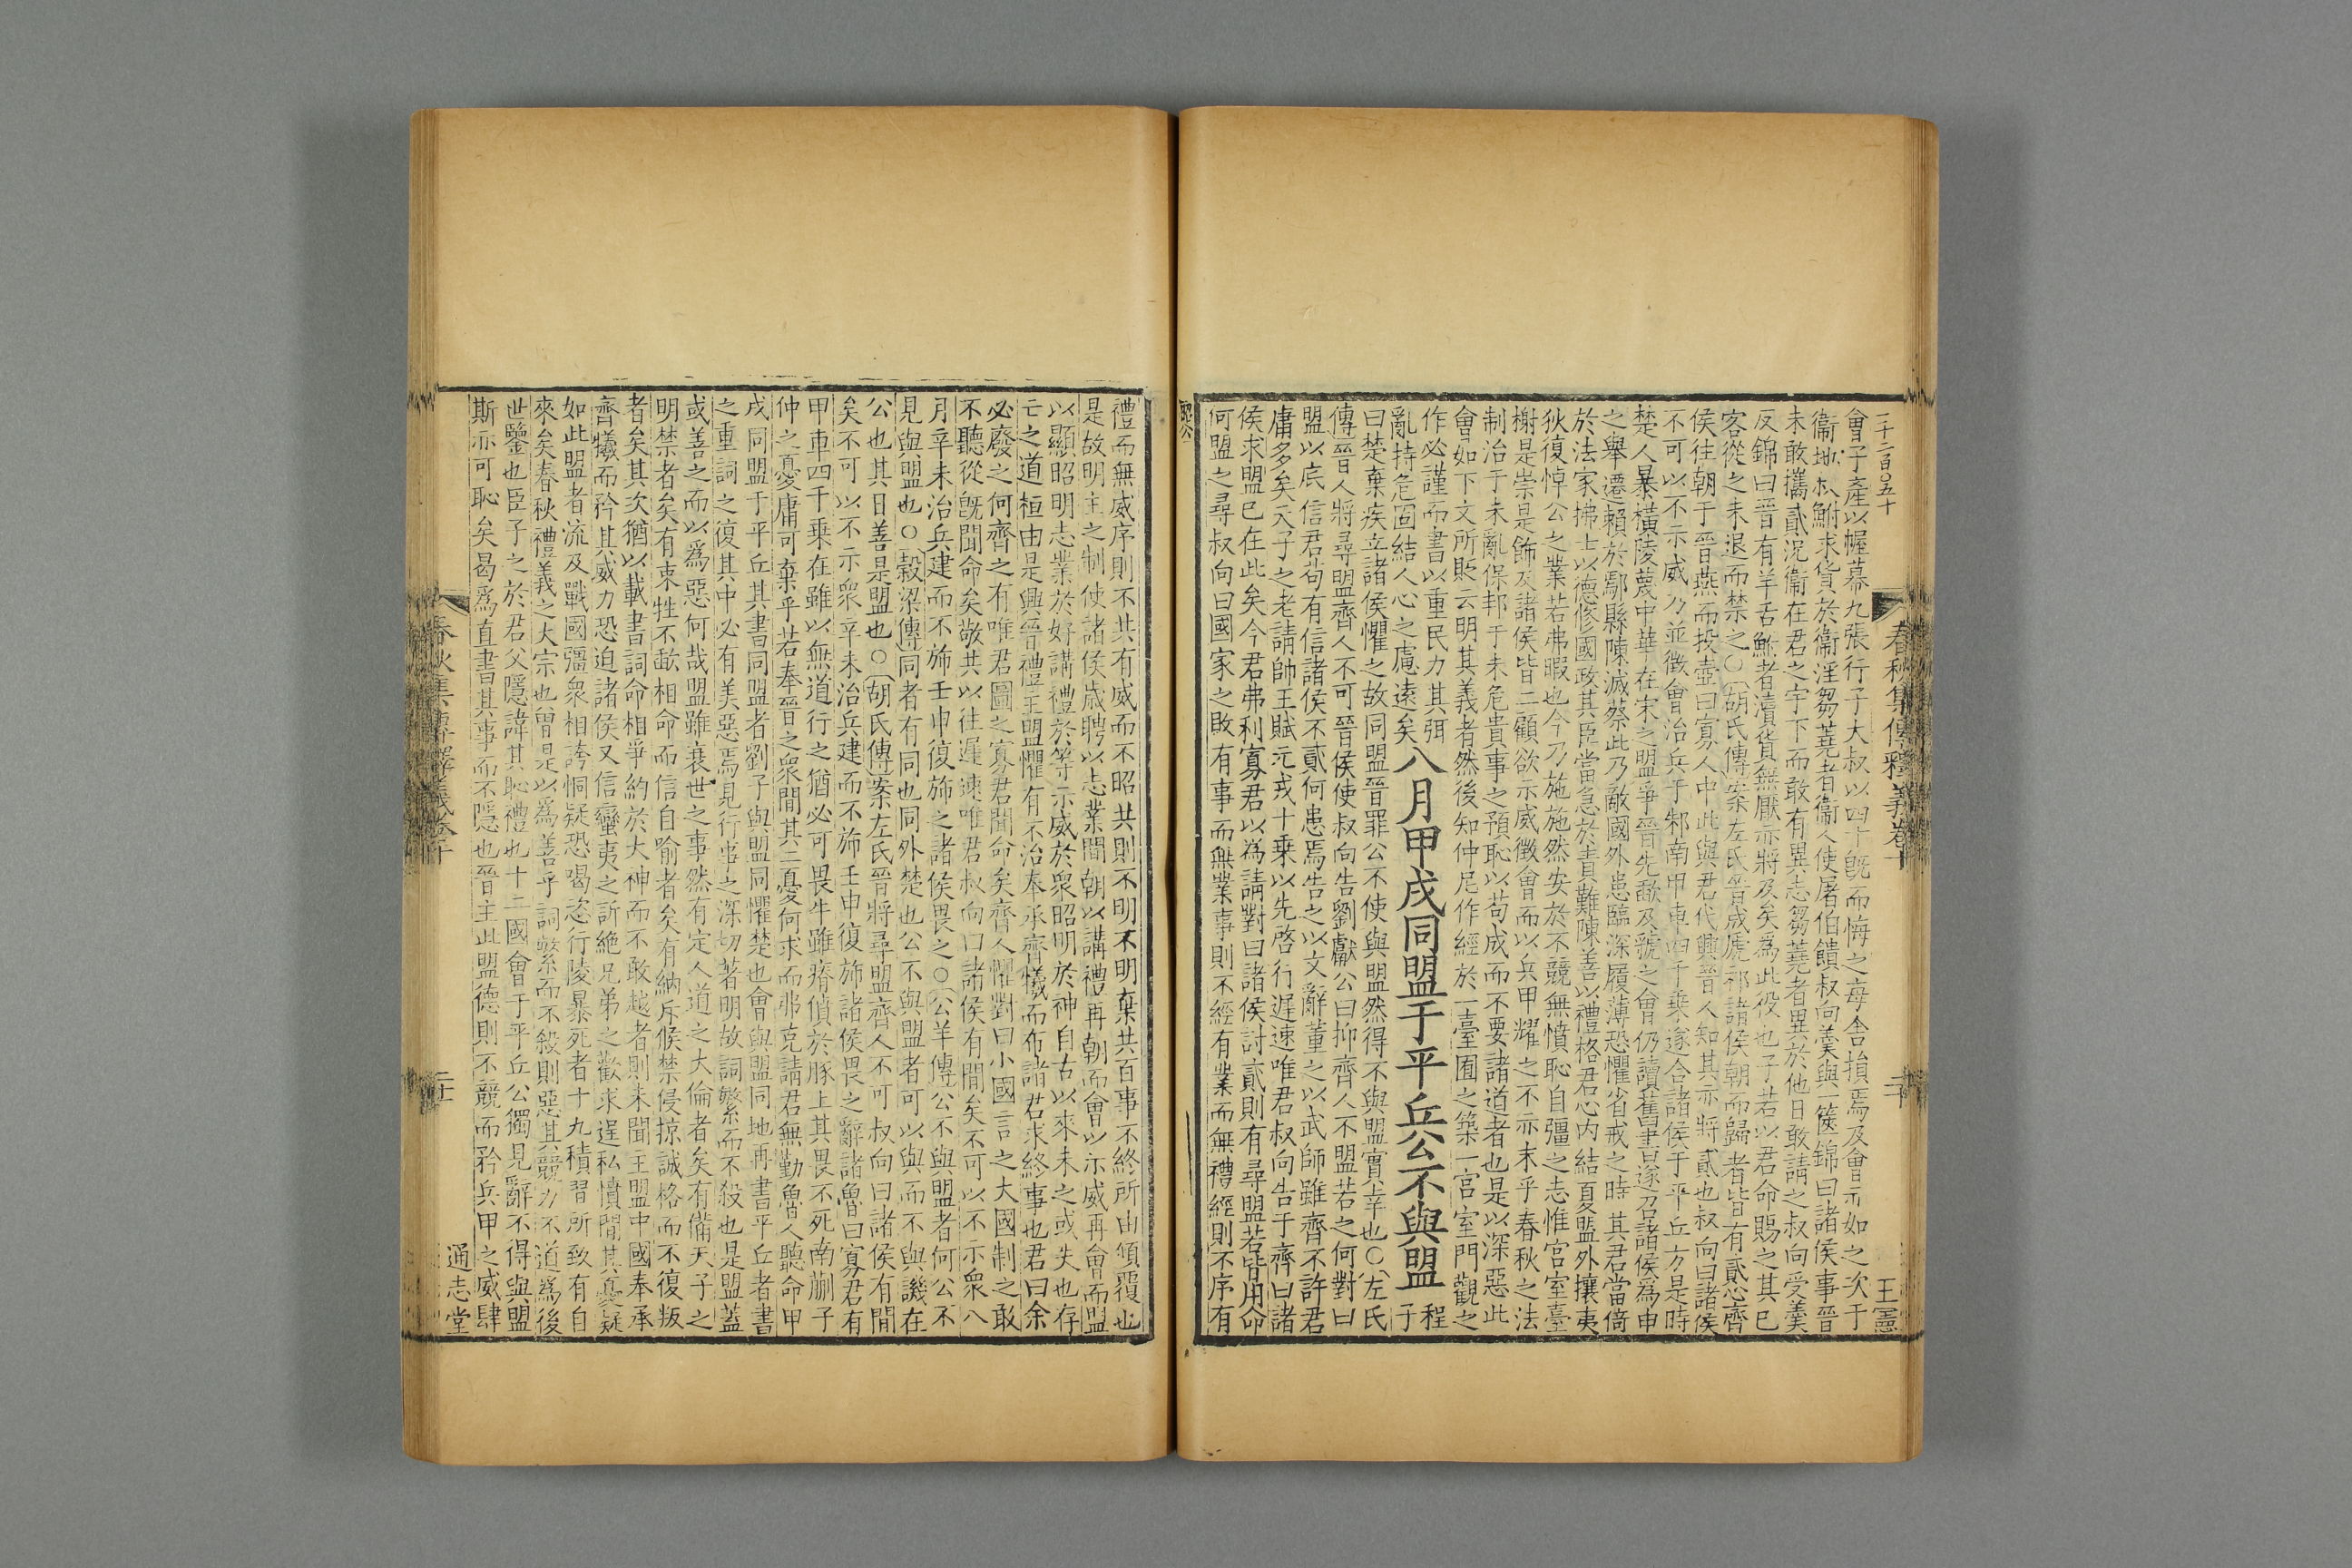 二千二百〇五十
春秋集傳釋義卷十
二十
王憲
會子產以幄幕九張行子大叔以四十旣而悔之每舍損焉及會亦如之次于
衞地叔鮒求貨於衞淫芻蕘者衞人使屠伯饋叔向羹與一篋錦曰諸侯事晉
未敢攜貳況衞在君之宇下而敢有異志芻蕘者異於他日敢請之叔向受羹
反錦曰晉有羊舌鮒者瀆貨無厭亦將及矣爲此役也子若以君命賜之其已
客從之未退而禁之〇胡氏傳案左氏晉成虒祁諸侯朝而歸者皆有貳心齊
侯往朝于晉燕而投壺曰寡人中此與君代興晉人知其亦將貳也叔向曰諸侯
不可以不示威乃並徵會治兵于邾南甲車四千乗遂合諸侯于平丘方是時
楚人暴橫陵蔑中華在宋之盟爭晉先歃及虢之會仍讀舊書遂召諸侯爲申
之舉遷賴於鄢縣陳滅蔡此乃敵國外患臨深履薄恐懼省戒之時其君當倚
於法家拂士以德修國政其臣當急於責難陳善以禮格君心内結夏盟外攘夷
狄復悼公之業若弗暇也今乃施施然安於不競無憤恥自彊之志惟宮室臺
榭是崇是飾及諸侯皆二顧欲示威徵會而以兵甲耀之不亦末乎春秋之法
制治于未亂保邦于未危貴事之預恥以苟成而不要諸道者也是以深惡此
會如下文所貶云明其義者然後知仲尼作經於一臺囿之築一宮室門觀之
作必謹而書以重民力其弭
亂持危固結人心之慮遠矣
八月甲戌同盟于平丘公不與盟
程
子
曰楚棄疾立諸侯懼之故同盟晉罪公不使與盟然得不與盟實幸也〇左氏
傳晉人將尋盟齊人不可晉侯使叔向告劉獻公曰抑齊人不盟若之何對曰
盟以底信君苟有信諸侯不貳何患焉告之以文辭董之以武師雖齊不許君
庸多矣天子之老請帥王賦元戎十乗以先啓行遲速唯君叔向告于齊曰諸
侯求盟已在此矣今君弗利寡君以為請對曰諸侯討貳則有尋盟若皆用命
何盟之尋叔向曰國家之敗有事而無業事則不經有業而無禮經則不序有
昭公
禮而無威序則不共有威而不昭共則不明不明棄共百事不終所由傾覆也
是故明王之制使諸侯歲聘以志業閒朝以講禮再朝而會以示威再會而盟
以顯昭明志業於好講禮於等示威於衆昭明於神自古以來未之或失也存
亡之道恒由是興晉禮主盟懼有不治奉承齊犧而布諸君求終事也君曰余
必廢之何齊之有唯君圖之寡君聞命矣齊人懼對曰小國言之大國制之敢
不聽從旣聞命矣敬共以往遲速唯君叔向曰諸侯有閒矣不可以不示衆八
月辛未治兵建而不斾壬申復斾之諸侯畏之〇公羊傳公不與盟者何公不
見與盟也〇穀梁傳同者有同也同外楚也公不與盟者可以與而不與譏在
公也其日善是盟也〇胡氏傳案左氏晉將尋盟齊人不可叔向曰諸侯有閒
矣不可以不示衆辛未治兵建而不斾壬申復斾諸侯畏之辭諸魯曰寡君有
甲車四千乗在雖以無道行之猶必可畏牛雖瘠僨於豚上其畏不死南蒯子
仲之憂庸可棄乎若奉晉之衆閒其二憂何求而弗克請君無勤魯人聽命甲
戌同盟于平丘其書同盟者劉子與盟同懼楚也會與盟同地再書平丘者書
之重詞之復其中必有美惡焉見行事之深切著明故詞繁而不殺也是盟蓋
或善之而以爲惡何哉盟雖衰世之事然有定人道之大倫者矣有備天子之
明禁者矣有束牲不歃相命而信自喻者矣有納斥候禁侵掠誠格而不復叛
者矣其次猶以載書詞命相爭約於大神而不敢越者則未聞主盟中國奉承
齊犧而矜其威力恐迫諸侯又信蠻夷之訴絶兄弟之歡求逞私憤閒其憂疑
如此盟者流及戰國彊衆相誇恫疑恐喝恣行陵暴死者十九積習所致有自
來矣春秋禮義之大宗也曾是以爲善乎詞繁而不殺則惡其競力不道爲後
世鑒也臣子之於君父隱諱其恥禮也十二國會于平丘公獨見辭不得與盟
斯亦可恥矣曷爲直書其事而不隱也晉主此盟德則不競而矜兵甲之威肆
春秋集傳釋義卷十
通志堂